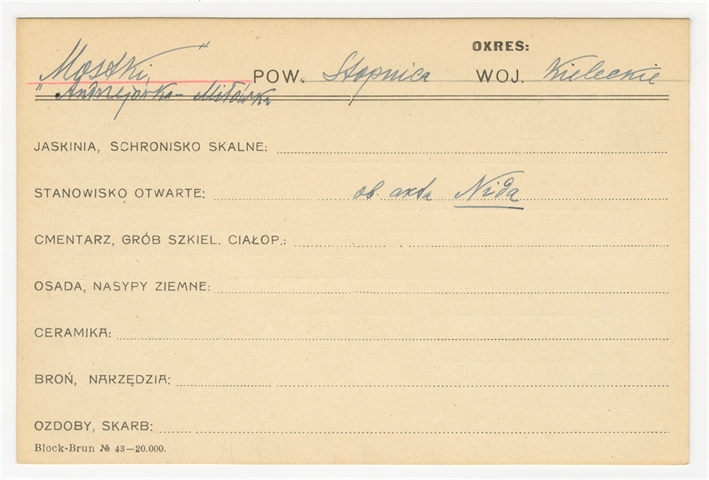 OKRES:
Mostki, " POW. Stopnica WOJ. Kieleckie
"Andrzejówka - Miłówka
JASKINIA, SCHRONISKO SKALNE:
STANOWISKO OTWARTE: ob. akta Nida
CMENTARZ, GRÓB SZKIEL. CIAŁOP.:
OSADA, NASYPY ZIEMNE:
CERAMIKA:
BROŃ, NARZĘDZIA:
OZDOBY, SKARB:
Block-Brun № 43—20.000.